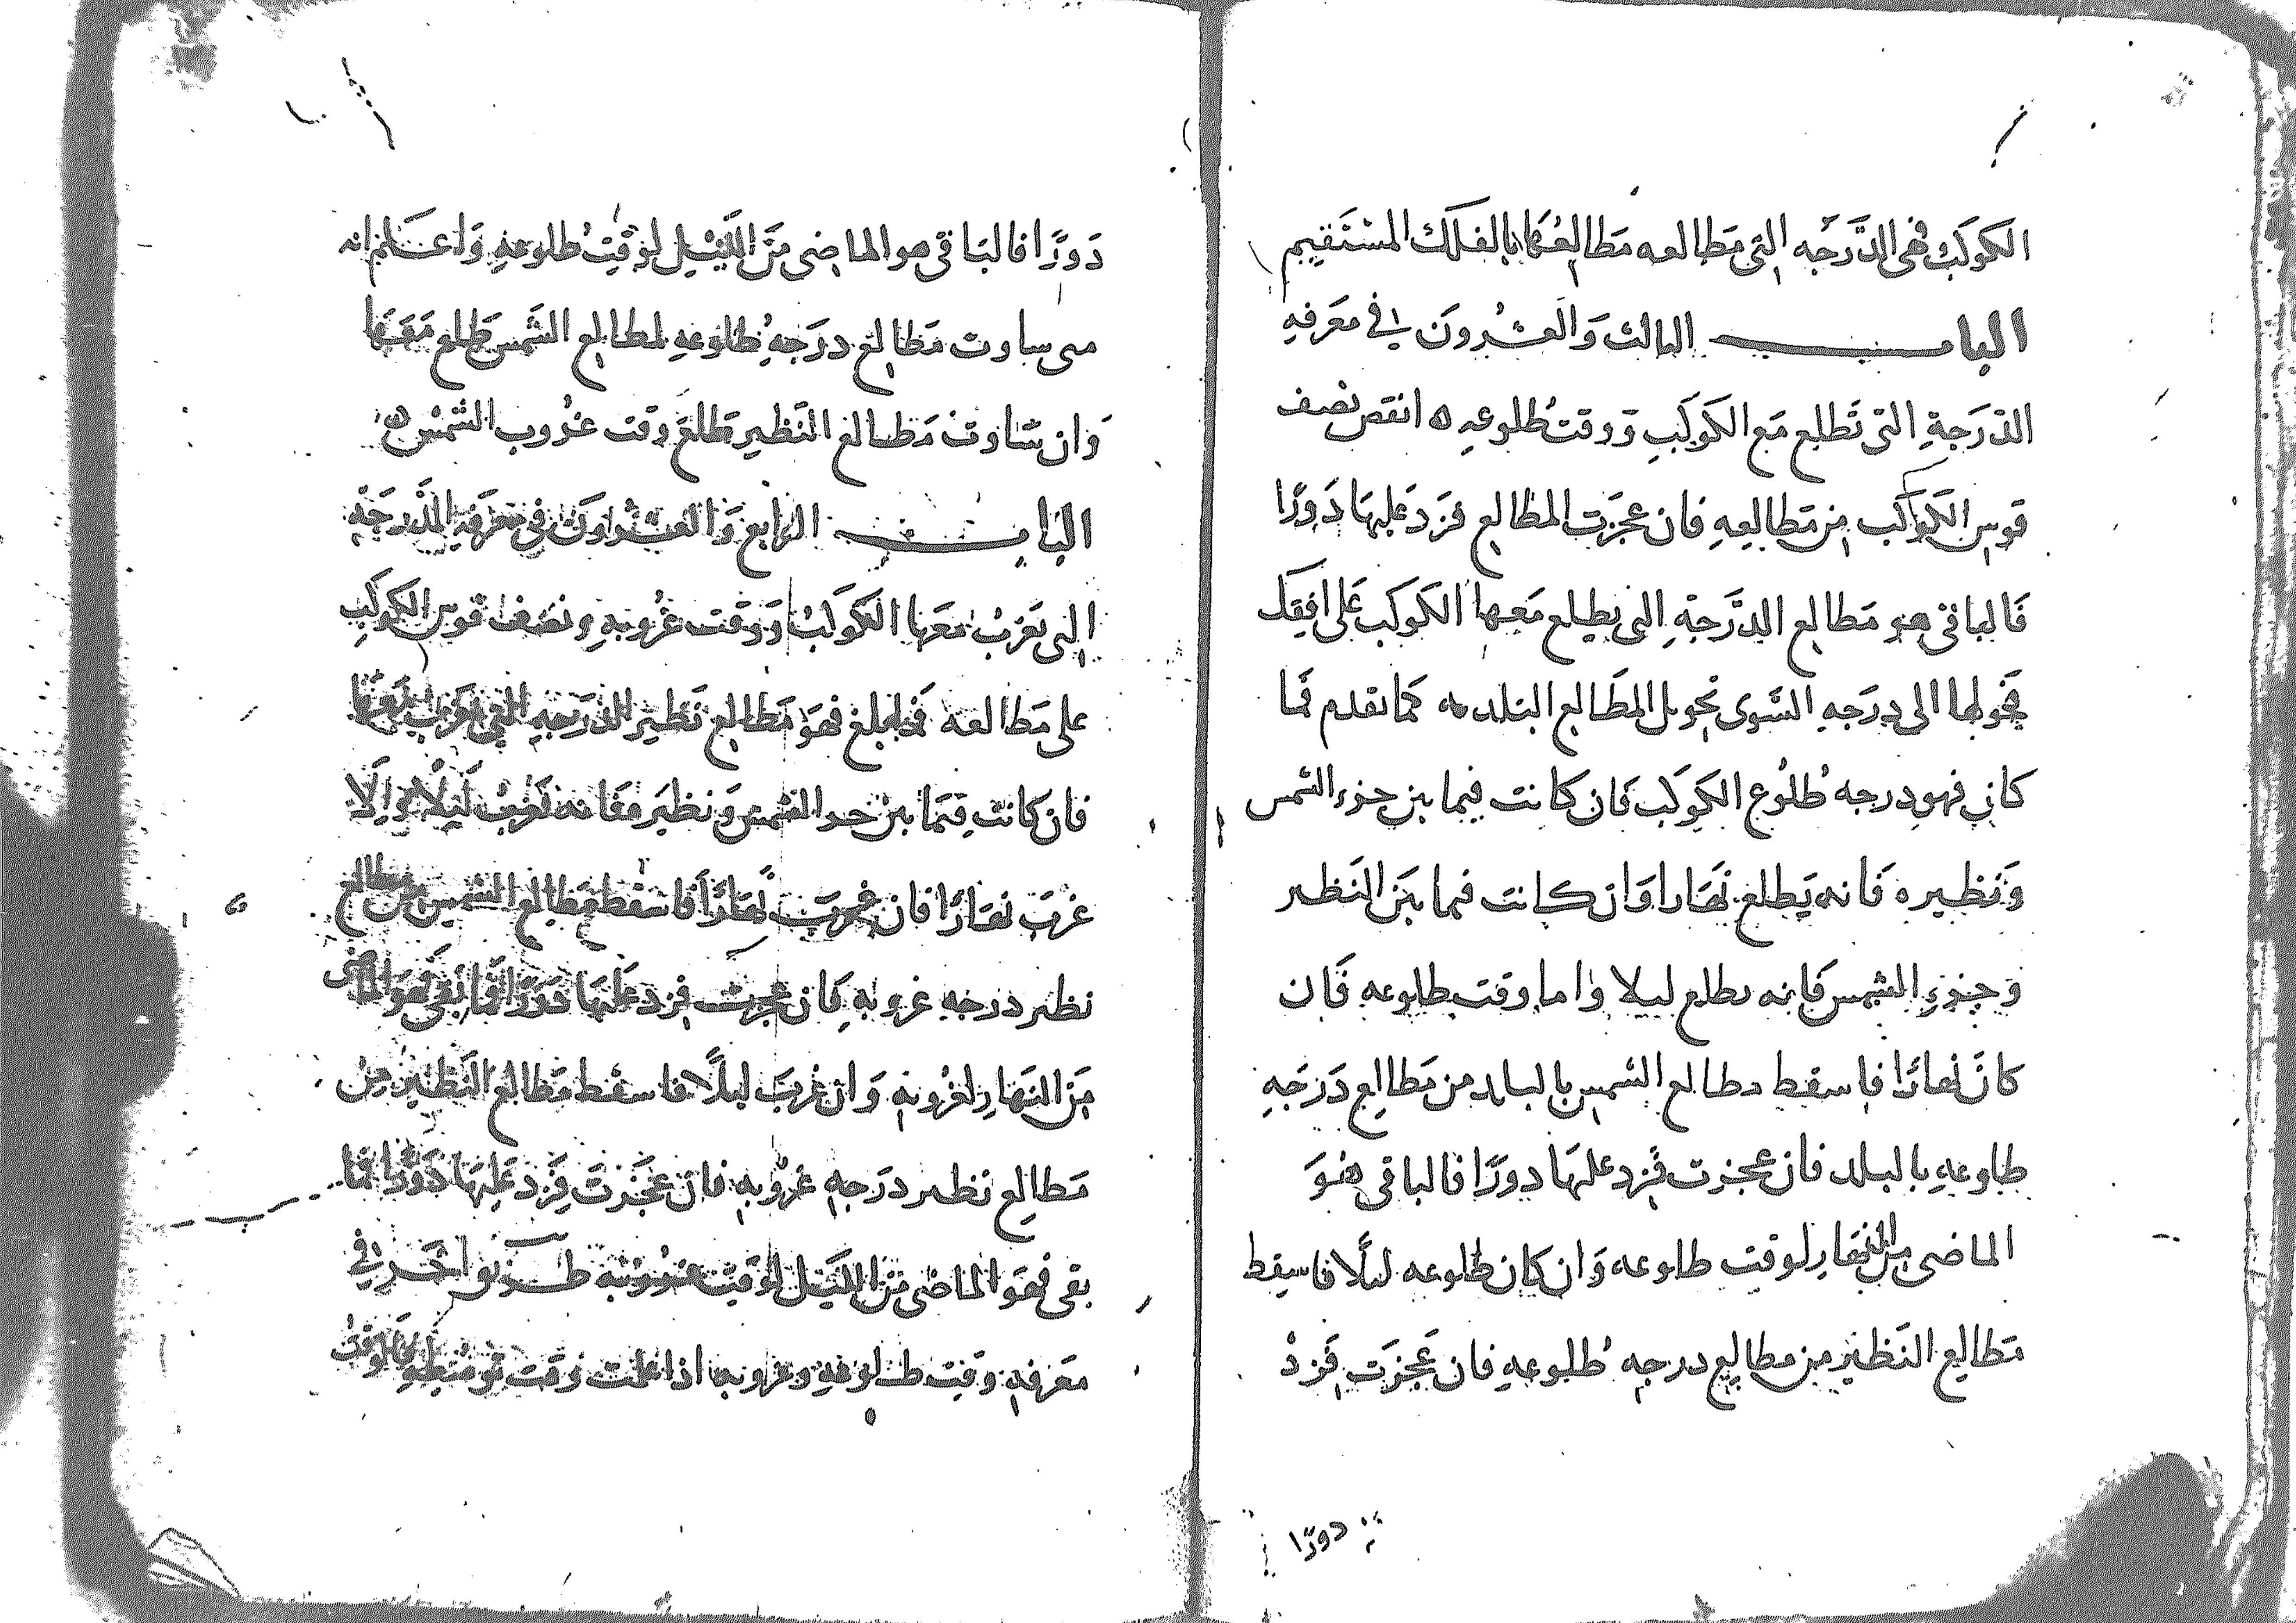 الكوكب فهى الدَّرَجه التى مَطالعه مَطالعُها بالفلك المستَقيم
الباب الثالث وَالعشرون فى معَرفهِ
الدّرَجةِ التى تَطلع مَع الكَوكَبِ وَوقتُ طُلوعهِ ه انقص نصف
قوس الكَوكَب من مَطالعِهِ فان عجزَت المطالع فزدَ عَليهَا دَورًا
فَالباقى هو مَطالع الدَّرَجةِ التى يطلع مَعها الكَوكَب عَلى افقِكَ
فحَولها الى درَجهِ السَّوى تحويل المَطَالع البَلديه كمَا تقدم فمَا
كان فهو درجه طُلُوع الكَوكَب فَان كانت فيما بين جزء الشمس
وَنَظيره فَانه يَطلع نَهَارا وَان كانت فيما بَيَن النَظير
وَجزءِ الشمس فَانه يطلع ليلا وَاما وقت طلوعه فَان
كانَ نَهارًا فاسقط مطالع الشمس بالبلد من مَطالع دَرَجَهِ
طلوعهِ بالبلد فان عجزت فزد عَلَيهَا دورًا فالباقى هُوَ
الماضى من النهارِ لوقت طلوعه وَان كان طلوعه ليلًا فاسقط
مَطالع النَظير من مطالع درجه طُلوعهِ فان عَجزَت فَزدْ
دورًا
دَورًا فالبَاقى هو الماضِى مَن اللَّيل لوَقتِ طلوعهِ وَاعلم انه
متى ساوت مَطالع درَجهِ طُلوعهِ لمطالع الشَمس طلع مَعَهَا
وَان سَاوت مَطالع النَظير تطلع وَقت غُروب الشمْس ه
البَاب الرابع وَالعشرون فى معَرفهِ الدَّرَجَة
التى يَغرُبُ مَعَها الكَوكَبُ وَوَقت غُروبهِ زِد نصف قوس الكَوكَب
على مَطالعه فما بلغ فهوَ مَطالع نَظير الدَرَجهِ التى يَغرب مَعَها
فان كانت فيمَا بين جزء الشمس وَنظيرَه فَانه يَغرُبْ لَيلًا وَالا
غربَ نهَارًا فان غَربَ نهَارًا فاسقط مَطالع الشمس من مطالع
نظير درَجهِ غروبهِ فَان عجزت فزد عَلَيهَا دَوَرًا فما بَقَى فهو الماضى
مَن النهَارِ لغرُوبهِ وَان غرَبَ ليلًا فاسقط مَطالع النَظير من
مَطالع نظير درَجهِ غرُوبهِ فان عَجَزَت فَزد عَلَيهَا دَوْرًا فما
بقى فهوَ الماضى مَن اللَيل لوَقت غروبه طريق اخر فى
معَرفهِ وَقت طلوعهِ وغروبه اذا علمت وَقت توسطِهِ